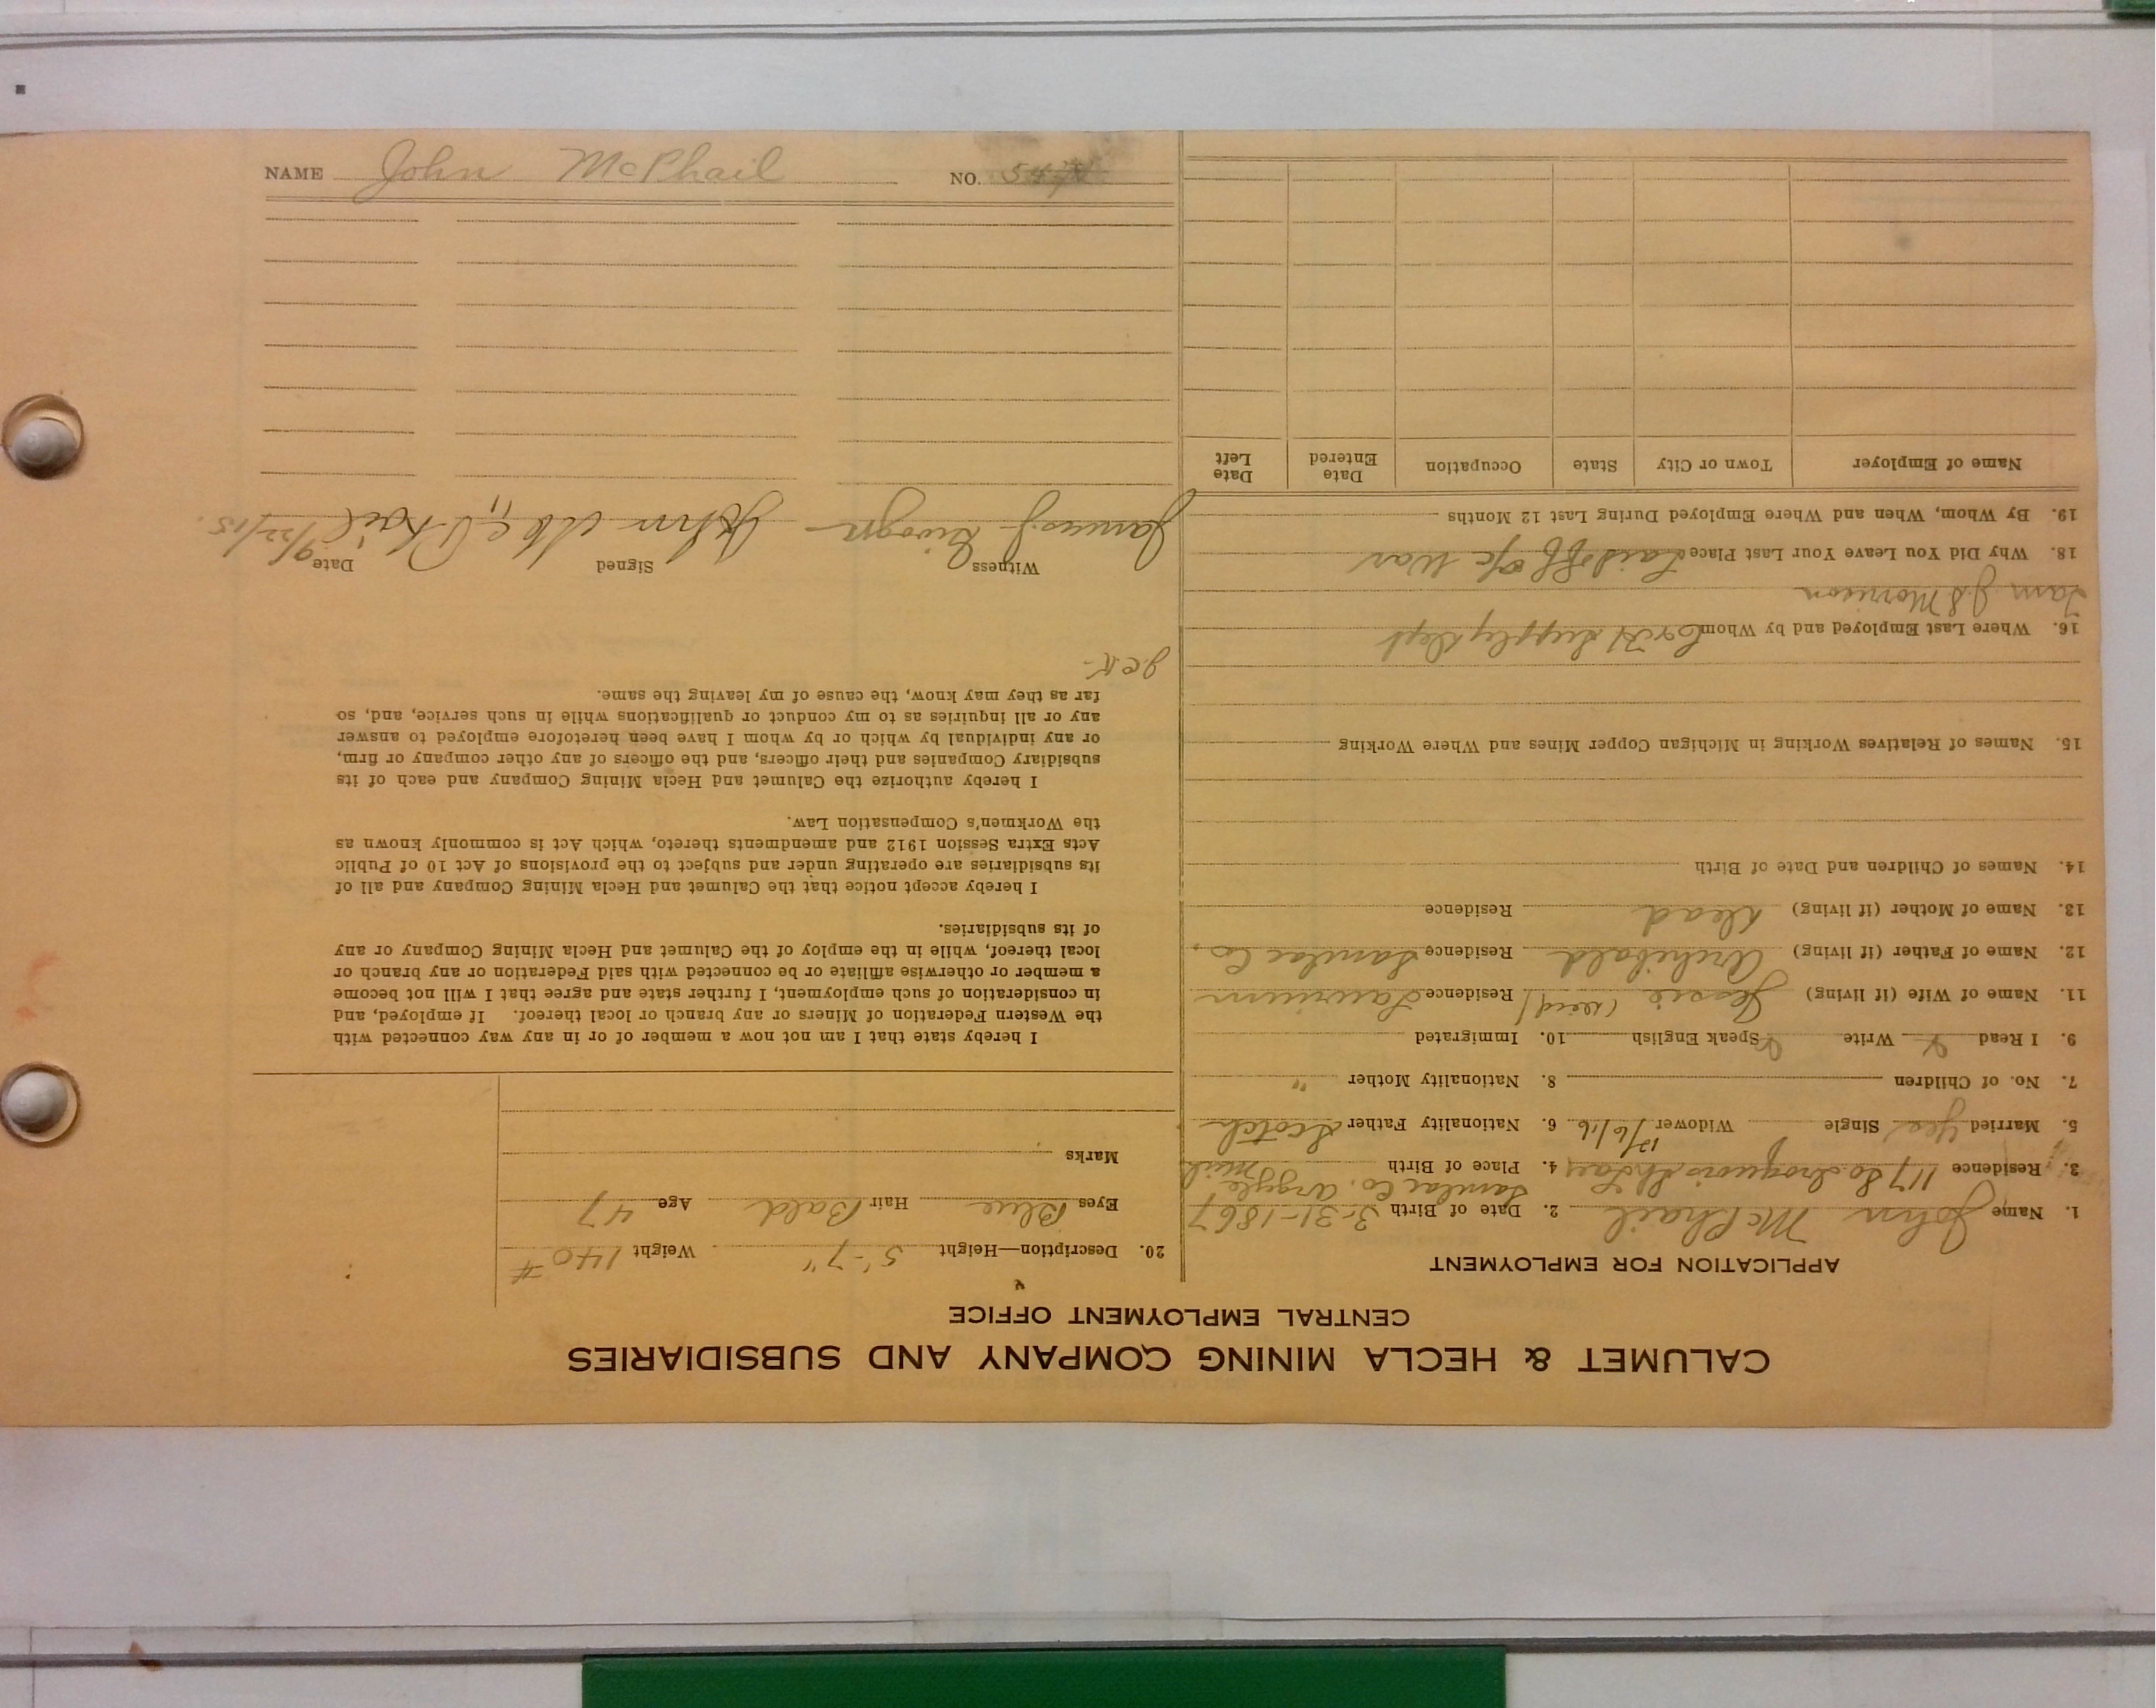 CALUMET & HECLA MINING COMPANY AND SUBSIDIARIES
CENTRAL EMPLOYMENT OFFICE
APPLICATION FOR EMPLOYMENT
1. Name John McPhail 2. Date of Birth 3-31-1867
3. Residence 117 So Iroquois St 4. Place of Birth Sanilac Co. Argyle Mich
12/6/16
5. Married Yes Single Widower 6. Nationality Father Scotch
7. No. of Children 8. Nationality Mother "
9. I Read Write Speak English 10. Immigrated
11. Name of Wife (if living) Jessie Residence Laurium
12. Name of Father (if living) Archibald Residence Sanilac Co.
13. Name of Mother (if living) Dead Residence
14. Names of Children and Date of Birth
15. Names of Relatives Working in Michigan Copper Mines and Where Working
16. Where Last Employed and by Whom C & H Supply Dept
J.S Morrison
18. Why Did You Leave Your Last Place Laid off a/c War
19. By Whom, When and Where Employed During Last 12 Months
Name of Employer Town or City State Occupation Date Entered Date Left
20. Description—Height 5'-7" Weight 140 #
Eyes Blue Hair Bald Age 47
Marks
I hereby state that I am not now a member of or in any way connected with
the Western Federation of Miners or any branch or local thereof. If employed, and
in consideration of such employment, I further state and agree that I will not become
a member or otherwise affiliate or be connected with said Federation or any branch or
local thereof, while in the employ of the Calumet and Hecla Mining Company or any
of its subsidiaries.
I hereby accept notice that the Calumet and Hecla Mining Company and all of
its subsidiaries are operating under and subject to the provisions of Act 10 of Public
Acts Extra Session 1912 and amendments thereto, which Act is commonly known as
the Workmen's Compensation Law.
I hereby authorize the Calumet and Hecla Mining Company and each of its
subsidiary Companies and their officers, and the officers of any other company or firm,
or any individual by which or by whom I have been heretofore employed to answer
any or all inquiries as to my conduct or qualifications while in such service, and, so
far as they may know, the cause of my leaving the same.
Witness Signed Date
James John McPhail 9/22/15.
NAME John McPhail NO.